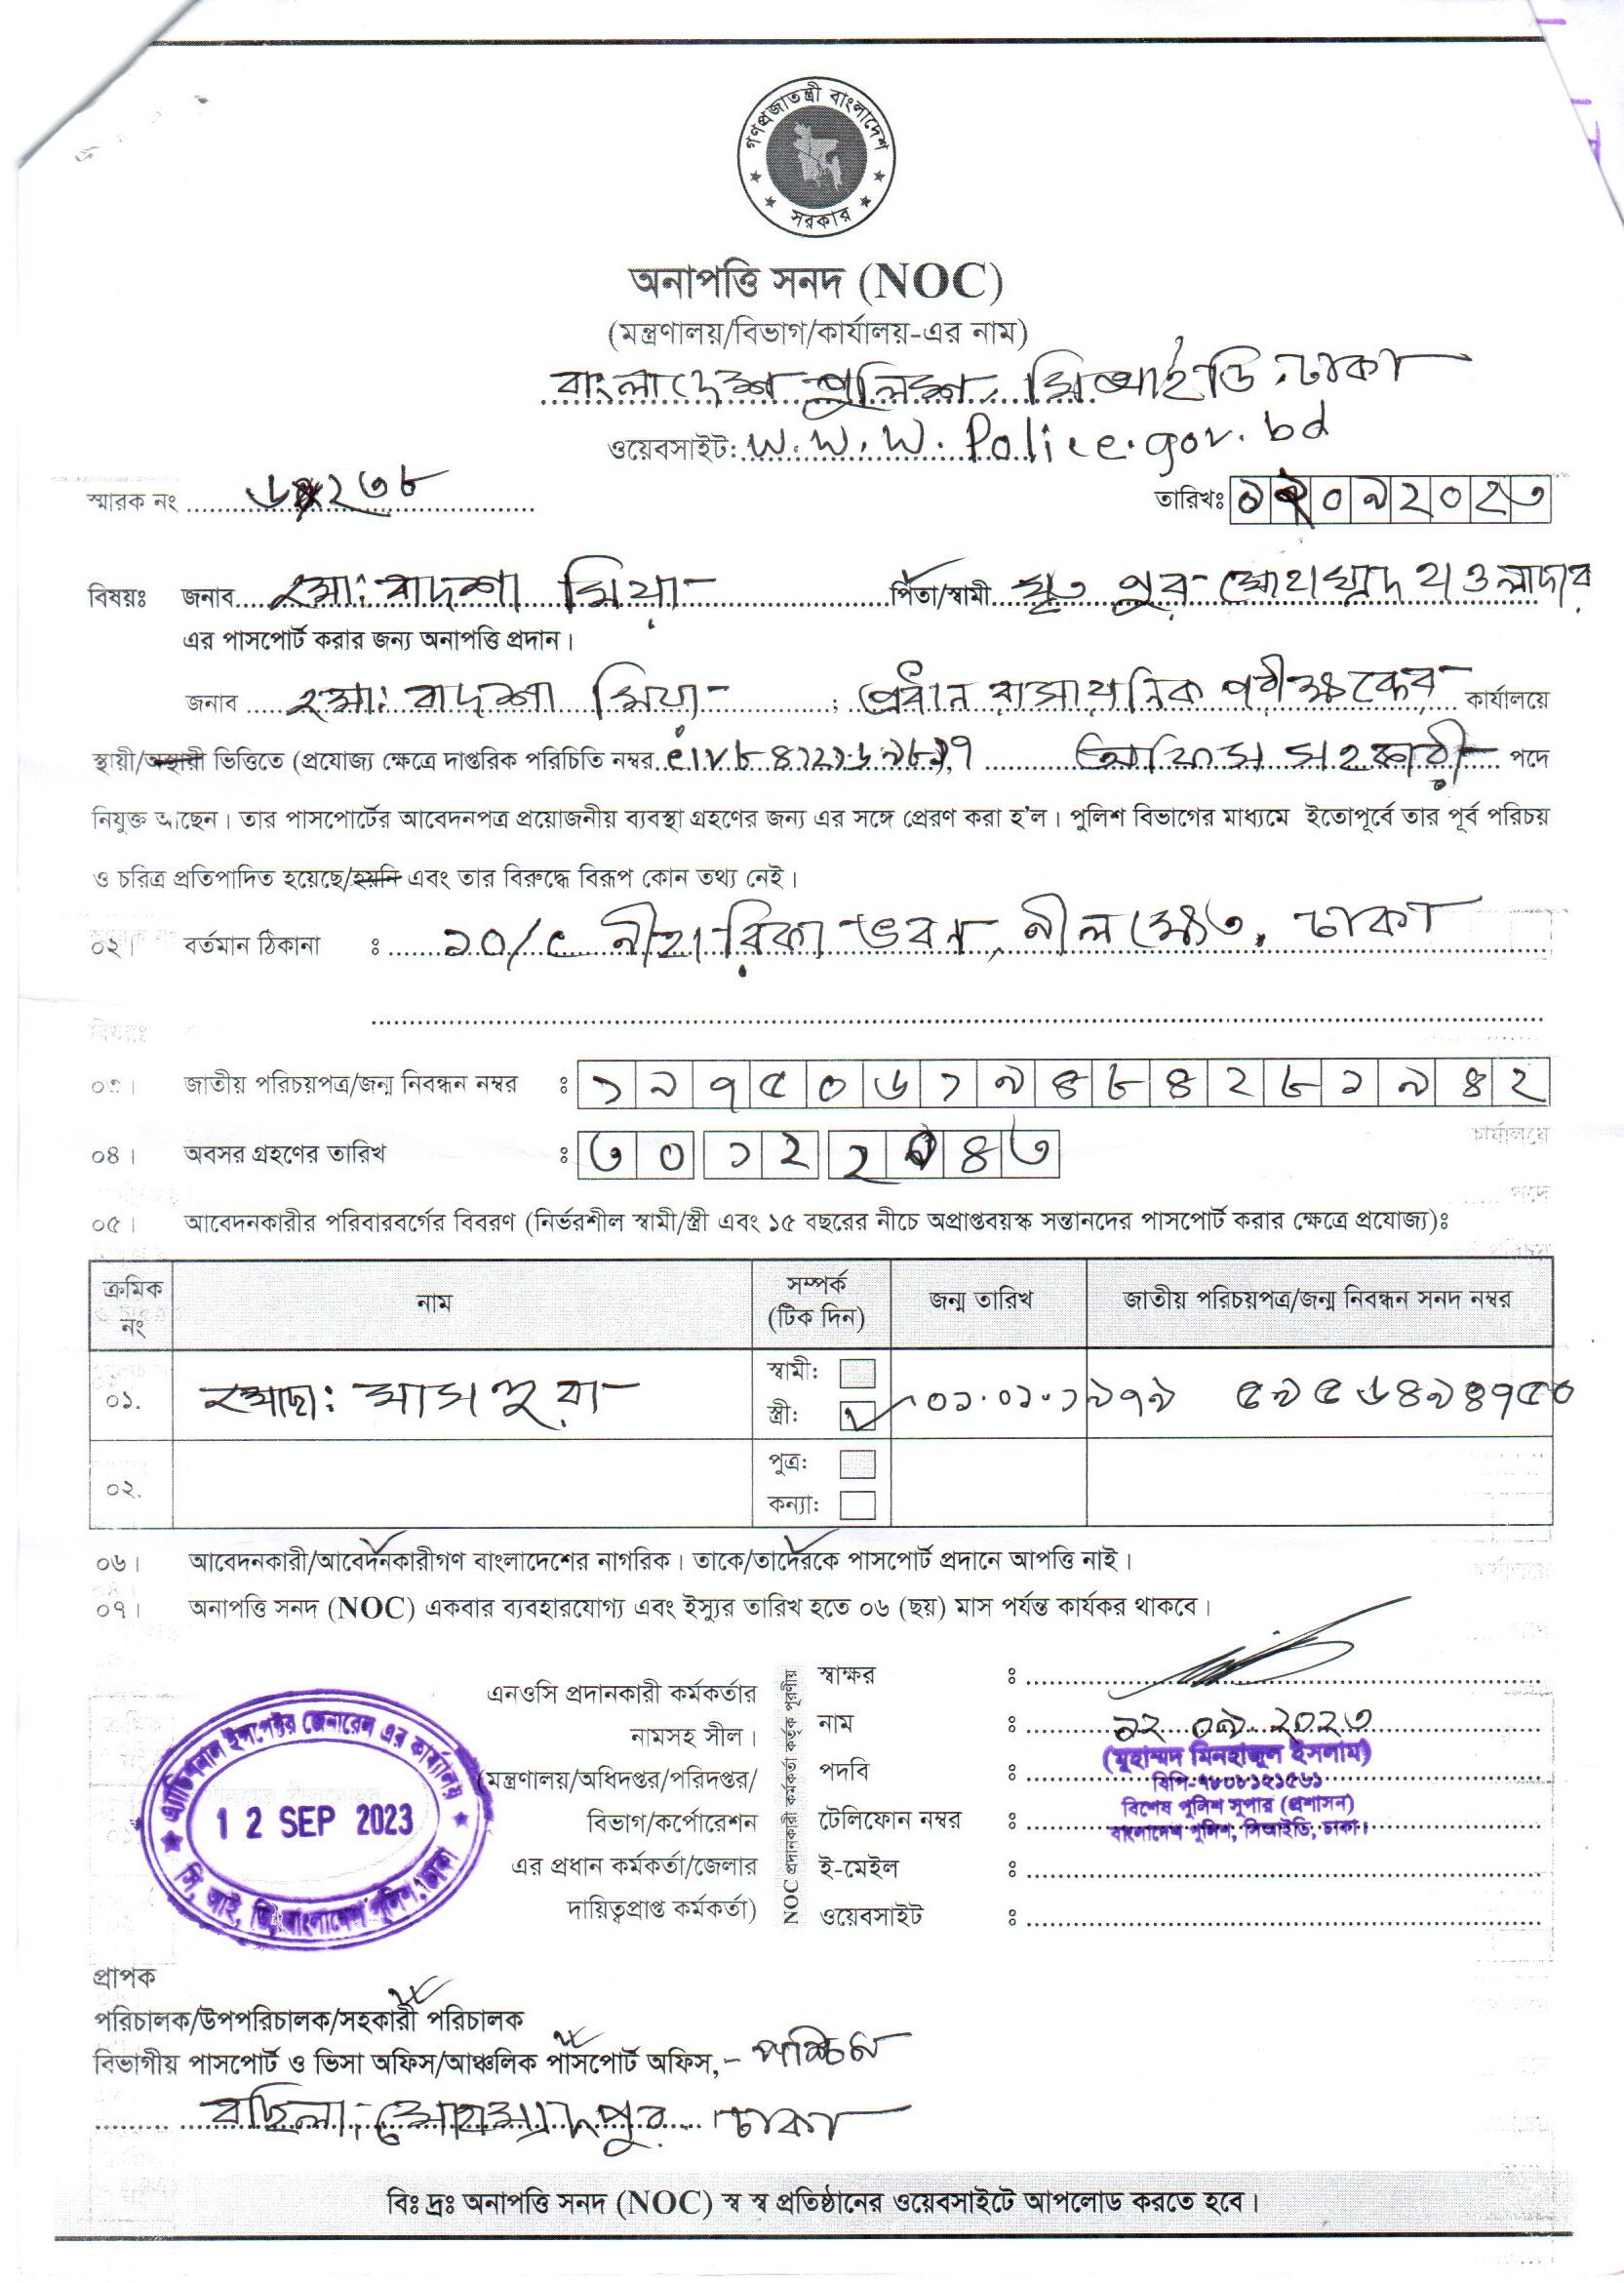 গণপ্রজাতন্ত্রী বাংলাদেশ
সরকার
অনাপত্তি সনদ (NOC)
(মন্ত্রণালয়/বিভাগ/কার্যালয়-এর নাম)
বাংলাদেশ পুলিশ, সিআইডি, ঢাকা
ওয়েবসাইট: W.W.W. Police.gov.bd
স্মারক নং ২৩৮
তারিখঃ ১২০৯২০২৩
বিষয়ঃ জনাব মো: বাদশা মিয়া পিতা/স্বামী মৃত নুর মোহাম্মদ হাওলাদার
এর পাসপোর্ট করার জন্য অনাপত্তি প্রদান।
জনাব মো: বাদশা মিয়া ; প্রধান রাসায়নিক পরীক্ষকের কার্যালয়ে
স্থায়ী/অস্থায়ী ভিত্তিতে (প্রযোজ্য ক্ষেত্রে দাপ্তরিক পরিচিতি নম্বর অফিস সহকারী পদে
নিযুক্ত আছেন। তার পাসপোর্টের আবেদনপত্র প্রয়োজনীয় ব্যবস্থা গ্রহণের জন্য এর সঙ্গে প্রেরণ করা হ'ল। পুলিশ বিভাগের মাধ্যমে ইতোপূর্বে তার পূর্ব পরিচয়
ও চরিত্র প্রতিপাদিত হয়েছে/হয়নি এবং তার বিরুদ্ধে বিরূপ কোন তথ্য নেই।
০২। বর্তমান ঠিকানা ঃ ১০/৫ নীহারিকা ভবন, নীলক্ষেত, ঢাকা
০৩। জাতীয় পরিচয়পত্র/জন্ম নিবন্ধন নম্বর ঃ ১৯৭৫০৬১৯৪৮৪২৮১৯৪২
০৪। অবসর গ্রহণের তারিখ ঃ ৩০১২২০৪৩
০৫। আবেদনকারীর পরিবারবর্গের বিবরণ (নির্ভরশীল স্বামী/স্ত্রী এবং ১৫ বছরের নীচে অপ্রাপ্তবয়স্ক সন্তানদের পাসপোর্ট করার ক্ষেত্রে প্রযোজ্য)ঃ
ক্রমিক নং নাম সম্পর্ক (টিক দিন) জন্ম তারিখ জাতীয় পরিচয়পত্র/জন্ম নিবন্ধন সনদ নম্বর
স্বামী:
০১. মোছা: মাসনুরা স্ত্রী: ০১.০১.১৯৭৯ ৫৯৫৬৪৯৪৭৫০
পুত্র:
০২. কন্যা:
০৬। আবেদনকারী/আবেদনকারীগণ বাংলাদেশের নাগরিক। তাকে/তাদেরকে পাসপোর্ট প্রদানে আপত্তি নাই।
০৭। অনাপত্তি সনদ (NOC) একবার ব্যবহারযোগ্য এবং ইস্যুর তারিখ হতে ০৬ (ছয়) মাস পর্যন্ত কার্যকর থাকবে।
এ্যাডিশনাল ইন্সপেক্টর জেনারেল এর কার্যালয়
12 SEP 2023
সি, আই, ডি, বাংলাদেশ পুলিশ, ঢাকা
এনওসি প্রদানকারী কর্মকর্তার
নামসহ সীল।
(মন্ত্রণালয়/অধিদপ্তর/পরিদপ্তর/
বিভাগ/কর্পোরেশন
এর প্রধান কর্মকর্তা/জেলার
দায়িত্বপ্রাপ্ত কর্মকর্তা)
NOC প্রদানকারী কর্মকর্তা কর্তৃক পূরণীয়
স্বাক্ষর ঃ
নাম ঃ ১২ ০৯ ২০২৩
(মুহাম্মদ মিনহাজুল ইসলাম)
পদবি ঃ বিপি-৭৮০৮১২১৫৬১
বিশেষ পুলিশ সুপার (প্রশাসন)
টেলিফোন নম্বর ঃ বাংলাদেশ পুলিশ, সিআইডি, ঢাকা।
ই-মেইল ঃ
ওয়েবসাইট ঃ
প্রাপক
পরিচালক/উপপরিচালক/সহকারী পরিচালক
বিভাগীয় পাসপোর্ট ও ভিসা অফিস/আঞ্চলিক পাসপোর্ট অফিস,- পশ্চিম
বছিলা, মোহাম্মদপুর, ঢাকা
বিঃ দ্রঃ অনাপত্তি সনদ (NOC) স্ব স্ব প্রতিষ্ঠানের ওয়েবসাইটে আপলোড করতে হবে।